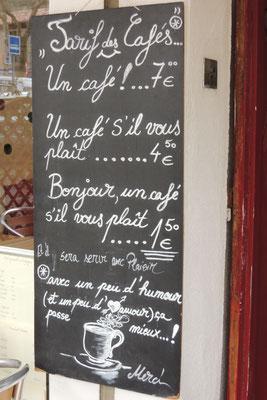 "Tarif des Cafés..."
Un café!...7€
Un café s'il vous
plaît .......4 50 €
Bonjour, un café
s'il vous plaît
.....1 50 €
sera servi avec Plaisir
avec un peu d'humour
(et un peu d'amour) ça
passe mieux...!
Merci